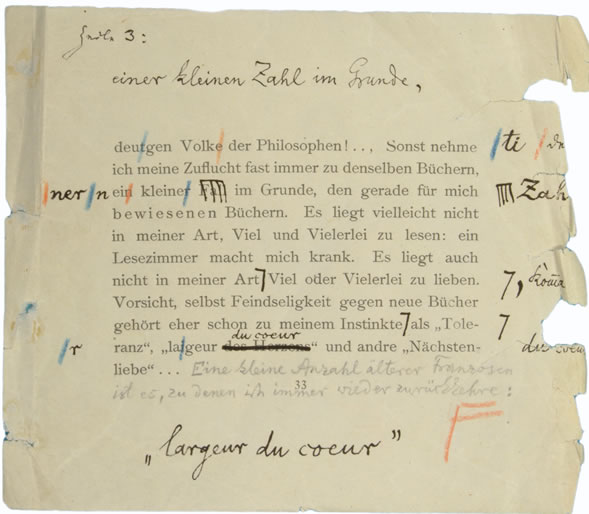 Zeile 3:
einer kleinen Zahl im Grunde,
deutgen Volke der Philosophen! .., Sonst nehme ti de
ich meine Zuflucht fast immer zu denselben Büchern,
ner n ein kleiner im Grunde, den gerade für mich Zah
bewiesenen Büchern. Es liegt vielleicht nicht
in meiner Art, Viel und Vielerlei zu lesen: ein
Lesezimmer macht mich krank. Es liegt auch
nicht in meiner Art Viel oder Vielerlei zu lieben. ,
Vorsicht, selbst Feindseligkeit gegen neue Bücher
gehört eher schon zu meinem Instinkte als „Tole-
du coeur
r ranz“, „largeur des Herzens“ und andre „Nächsten- du coeur
liebe“ ... Eine kleine Anzahl älterer Franzosen
33
ist es, zu denen ich immer wieder zurückkehre:
F
„largeur du coeur”